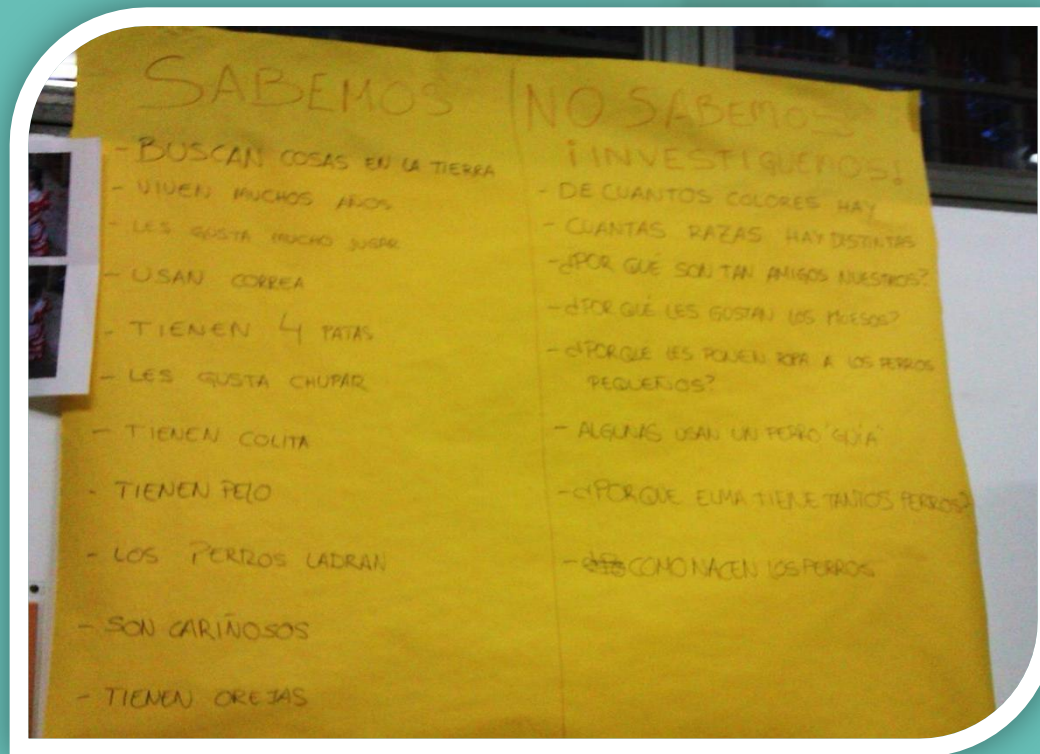 SABEMOS
- BUSCAN COSAS EN LA TIERRA
- VIVEN MUCHOS AÑOS
- LES GUSTA MUCHO JUGAR
- USAN CORREA
- TIENEN 4 PATAS
- LES GUSTA CHUPAR
- TIENEN COLITA
- TIENEN PELO
- LOS PERROS LADRAN
- SON CARIÑOSOS
- TIENEN OREJAS
NO SABEMOS
¡INVESTIGUEMOS!
- DE CUANTOS COLORES HAY
- CUANTAS RAZAS HAY DISTINTAS
- ¿POR QUÉ SON TAN AMIGOS NUESTROS?
- ¿POR QUÉ LES GUSTAN LOS HUESOS?
- ¿PORQUE LES PONEN ROPA A LOS PERROS
PEQUEÑOS?
- ALGUNAS USAN UN PERRO "GUÍA"
- ¿PORQUE ELMA TIENE TANTOS PERROS?
- COMO NACEN LOS PERROS